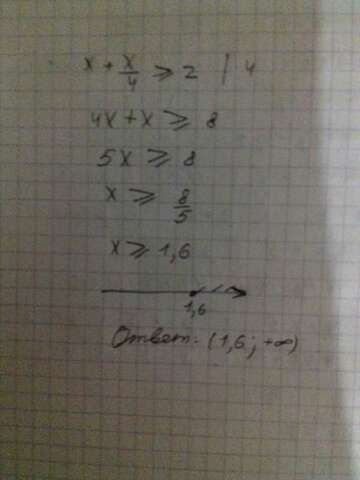 x + x/4 ⩾ 2 | 4
4x + x ⩾ 8
5x ⩾ 8
x ⩾ 8/5
x ⩾ 1,6
1,6
Ответ: (1,6; +∞)